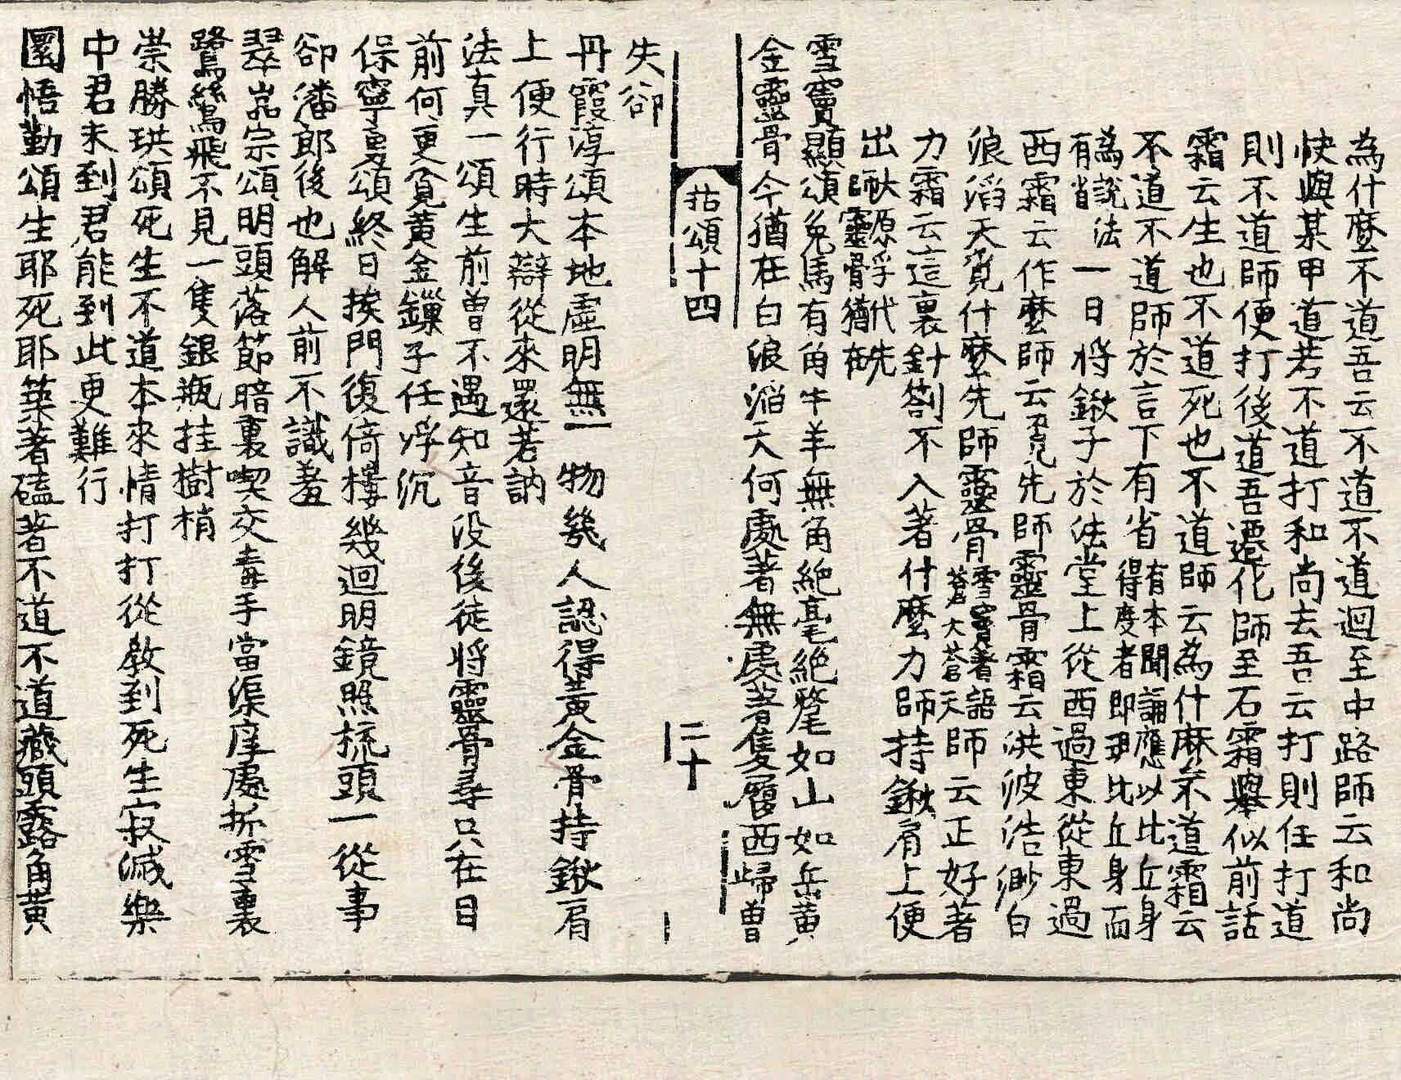 為什麼不道吾云不道不道迴至中路師云和尚
快與某甲道若不道打和尚去吾云打則任打道
則不道師便打後道吾遷化師至石霜舉似前話
霜云生也不道死也不道師云為什麻不道霜云
不道不道師於言下有省有本聞誦應以比丘身
得度者即現比丘身而
為說法
有省一日將鍬子於法堂上從西過東從東過
西霜云作麼師云覓先師靈骨霜云洪波浩渺白
浪滔天覓什麼先師靈骨雪竇著語
蒼天蒼天師云正好著
力霜云這裏針劄不入著什麼力師持鍬肩上便
出太原孚代先
師靈骨猶在
雪竇顯頌兔馬有角牛羊無角絕毫絕氂如山如岳黃
金靈骨今猶在白浪滔天何處著無處著隻履西歸曾
拈頌十四 二十
失卻
丹霞淳頌本地虛明無一物幾人認得黃金骨持鍬肩
上便行時大辯從來還若訥
法真一頌生前曾不遇知音沒後徒將靈骨尋只在目
前何更覓黃金鏁子任浮沉
保寧勇頌終日挨門復倚樓幾迴明鏡照梳頭一從事
卻潘郎後也解人前不識羞
翠嵓宗頌明頭落節暗裏喫交毒手當渠痒處折雪裏
鷺鷥飛不見一隻銀瓶挂樹梢
崇勝珙頌死生不道本來情打打從教到死生寂滅樂
中君未到君能到此更難行
圜悟勤頌生耶死耶築著磕著不道不道藏頭露角黃